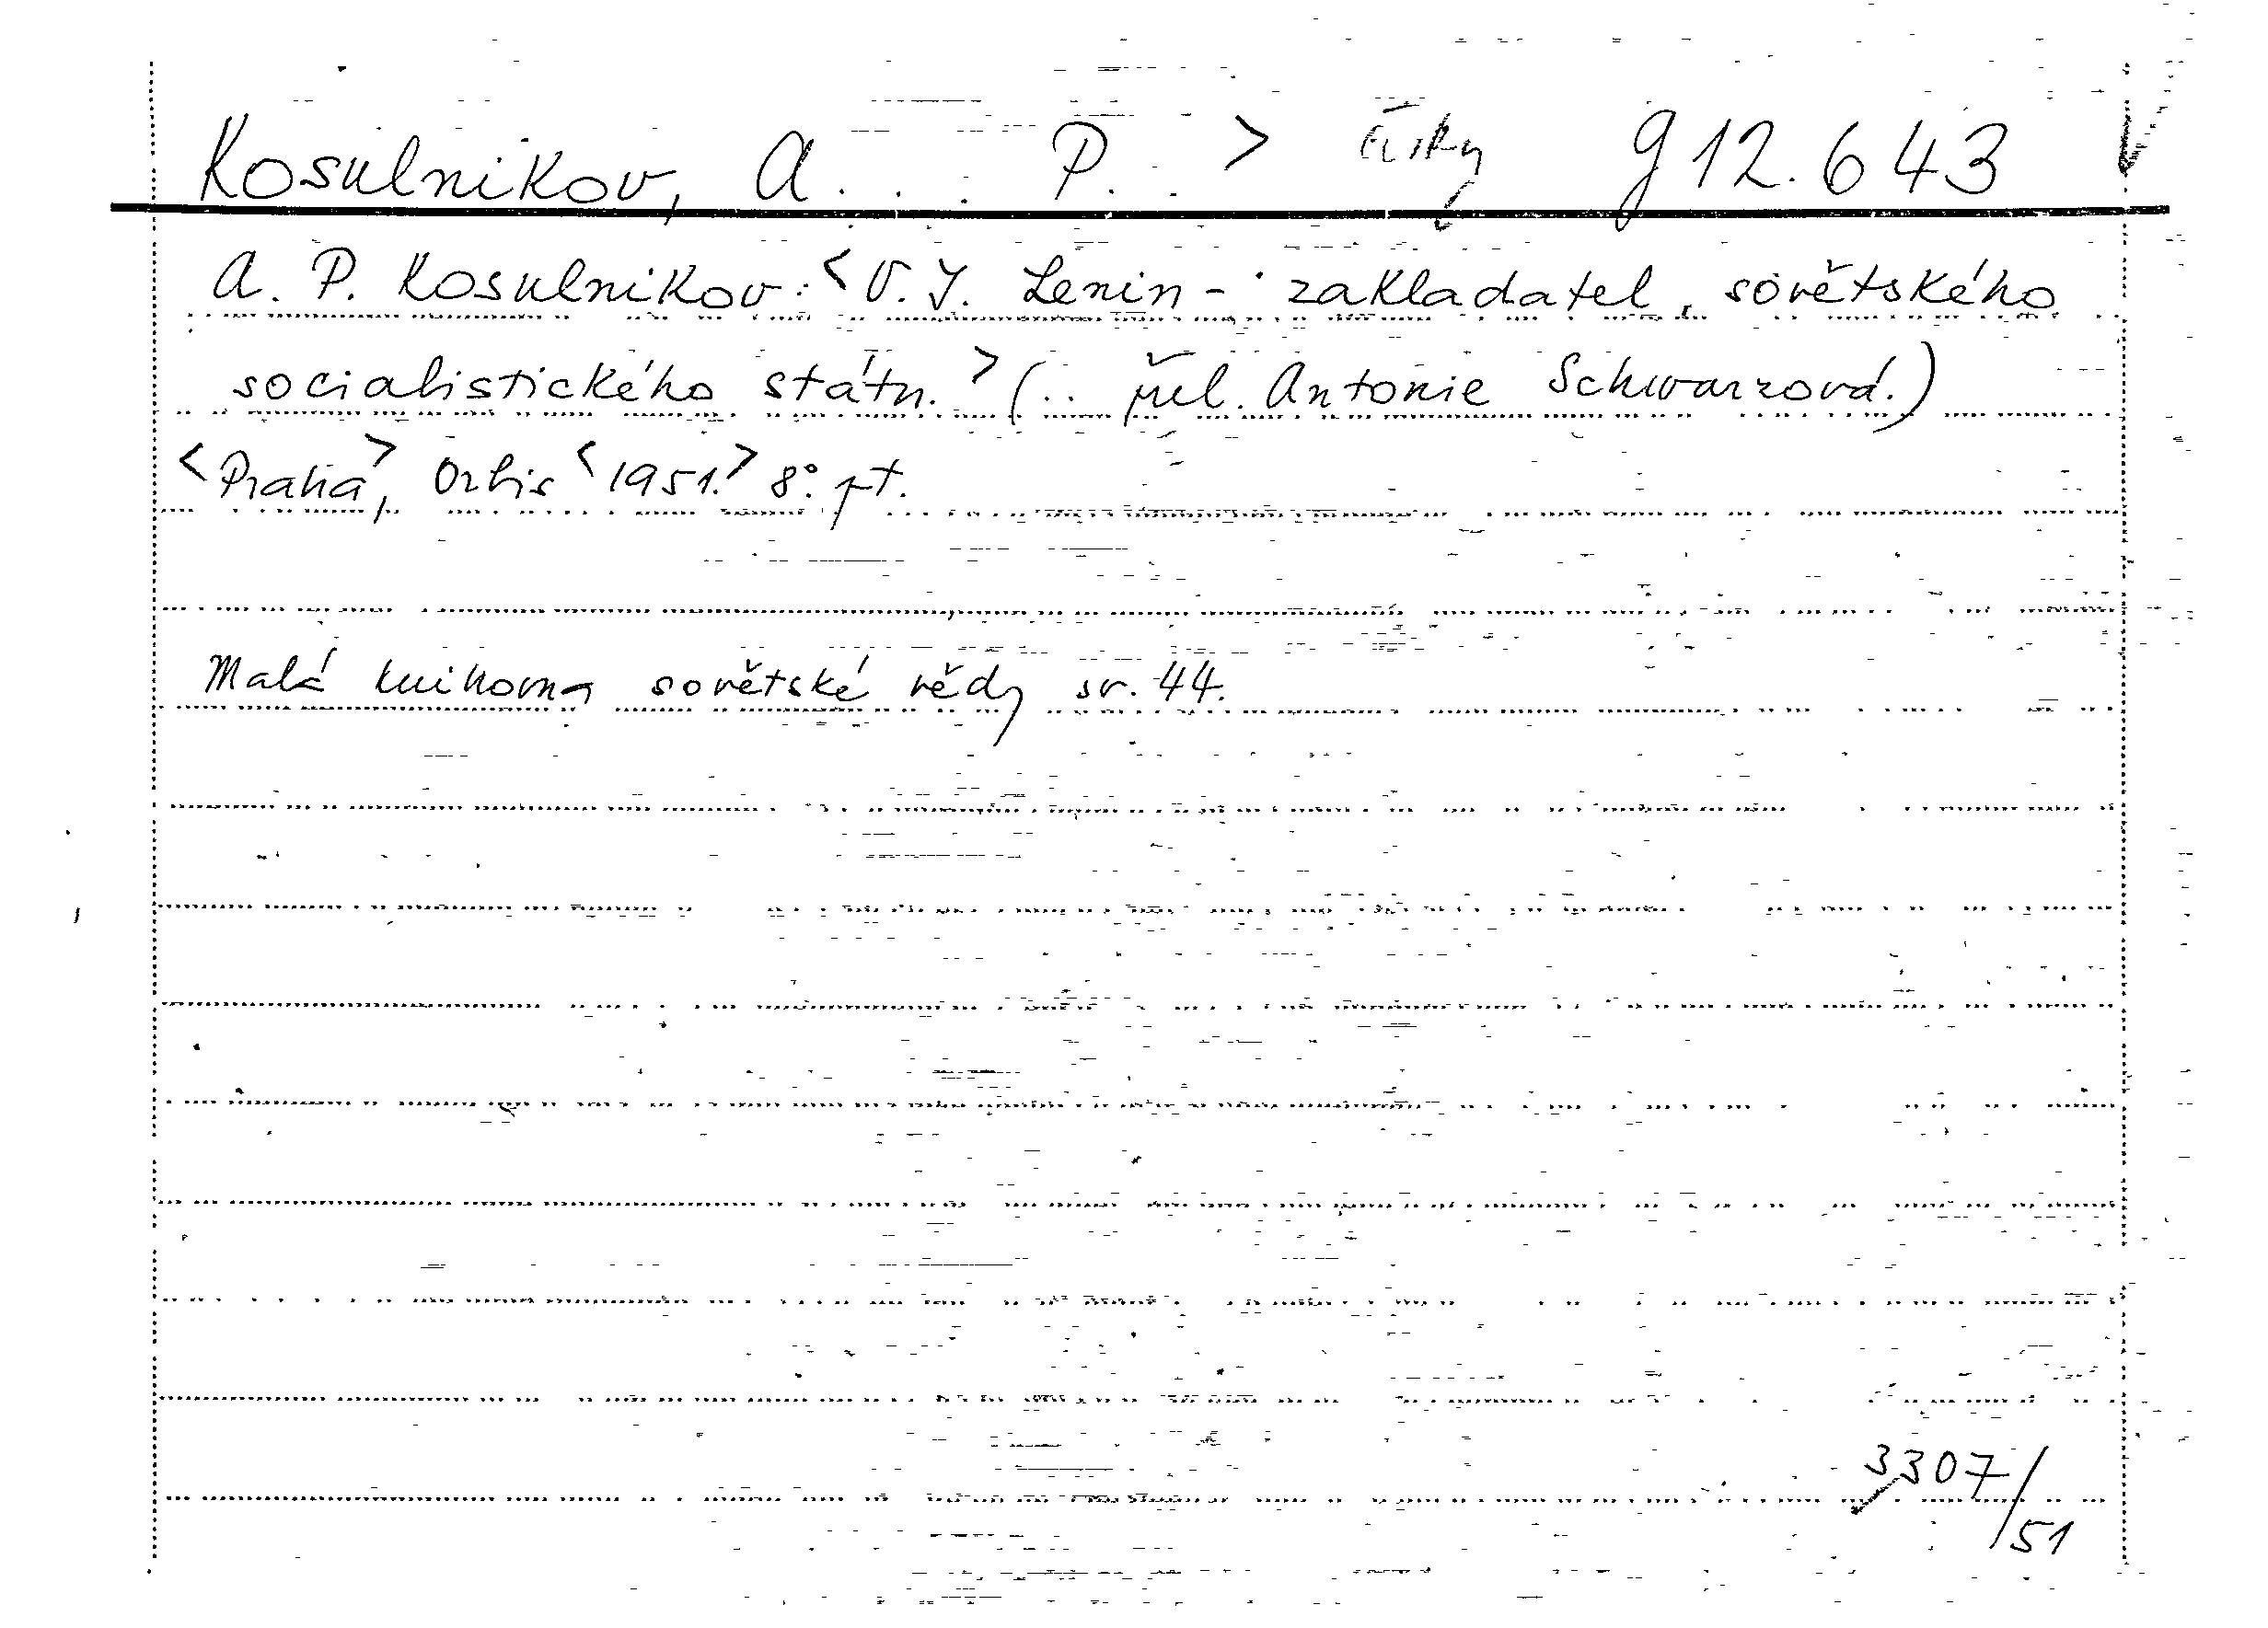 Kosulnikov, A... P.. > česky g 12.643
A. P. Kosulnikov: <V. J. Lenin - zakladatel sovětského
socialistického státu.> (.. přel. Antonie Schwarzová.)
<Praha>, Orbis <1951.> 8°. pt.
Malá knihovna sovětské vědy sv. 44.
3307/51